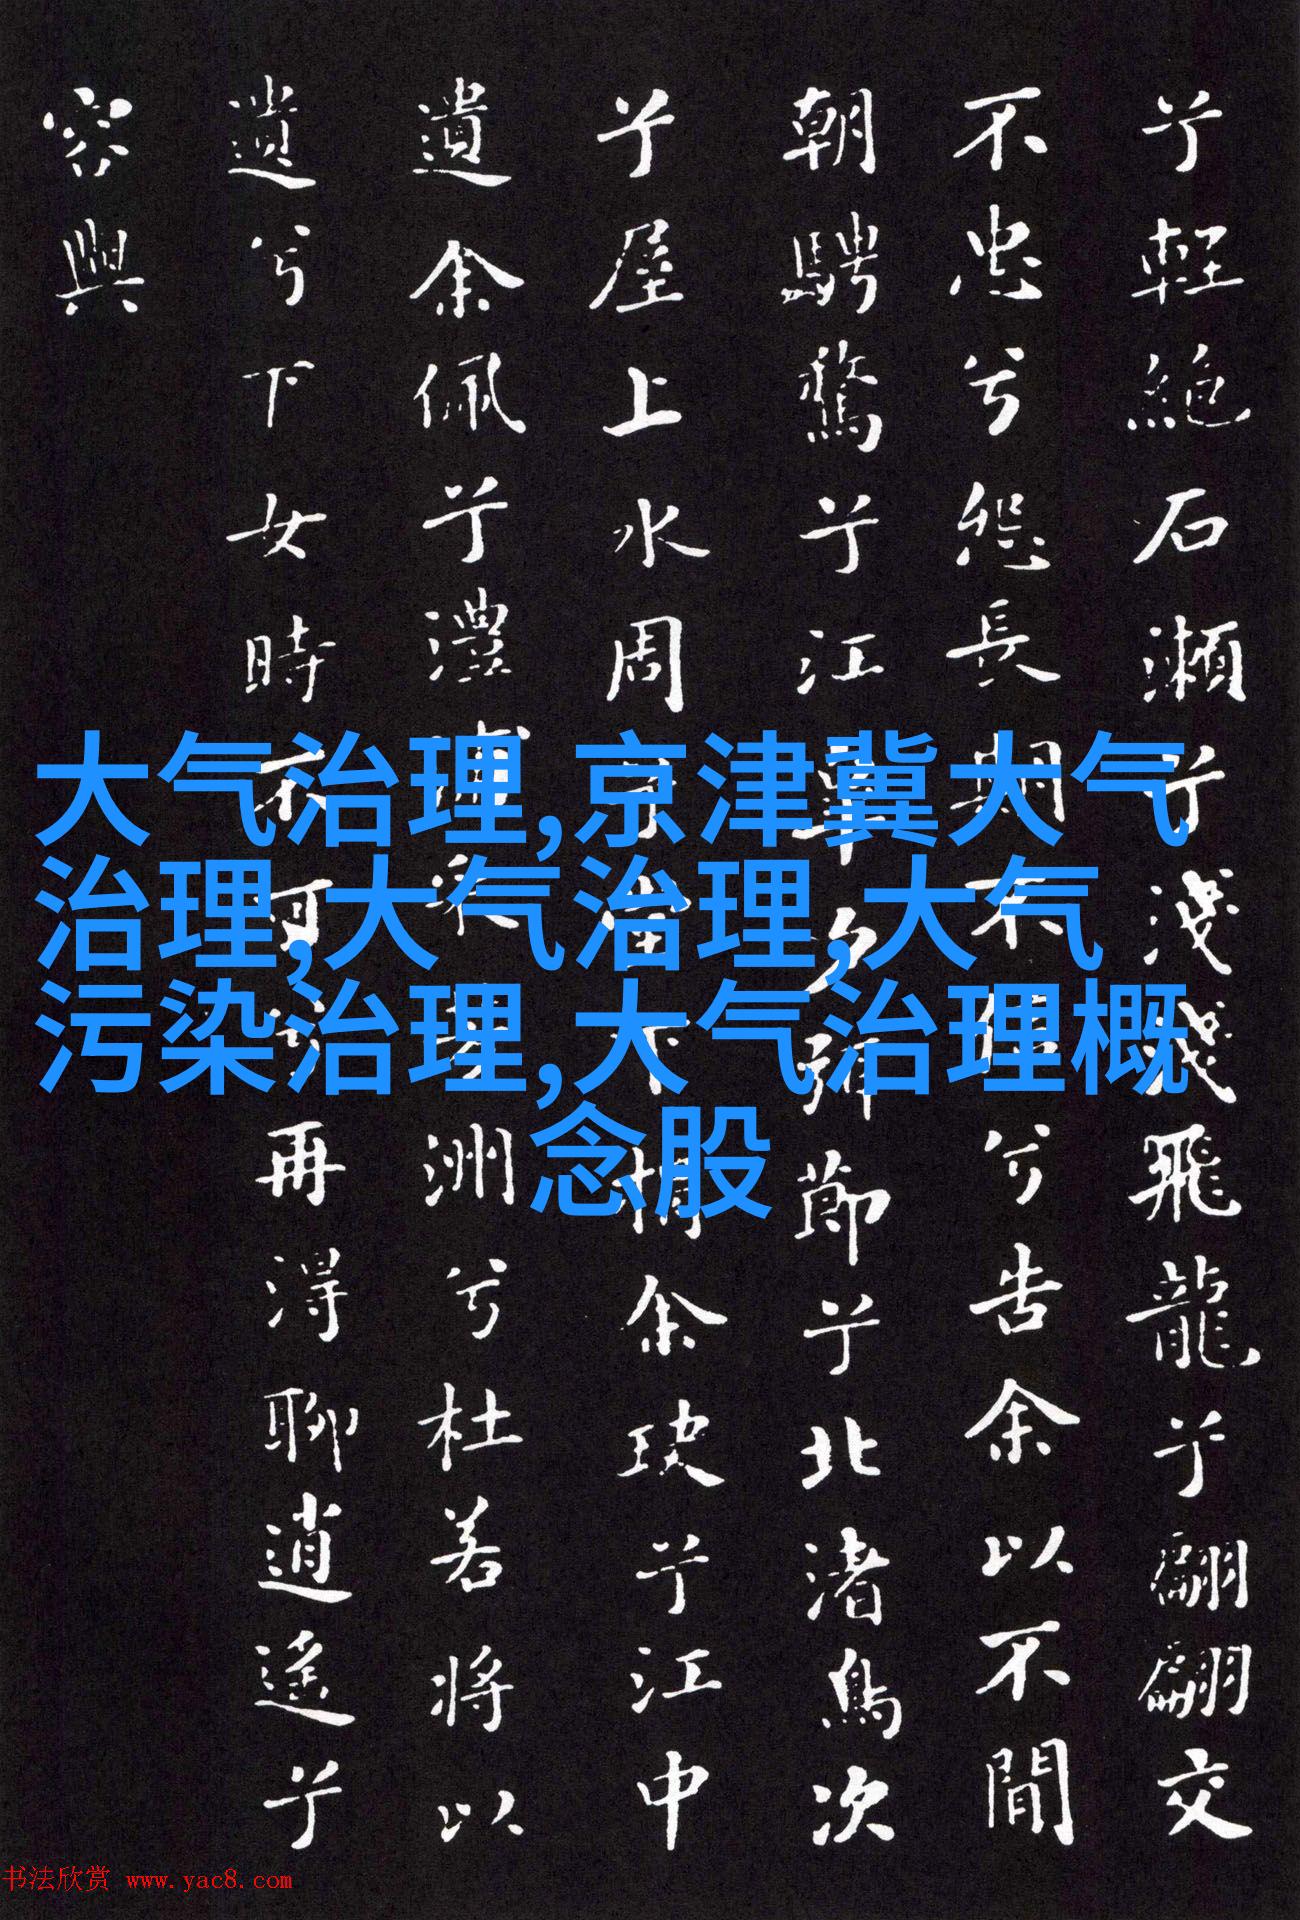 兮輕絕石瀨兮淺淺飛龍兮翩翩交
不忠兮怨長期不信兮告余以不閒
朝騁騖兮江皋夕弭節兮北渚鳥次
兮屋上水周兮堂下捐余玦兮江中
遺余佩兮澧浦采芳洲兮杜若將以
遺兮下女時不可兮再得聊逍遙兮
容與
大气治理,京津冀大气
治理,大气治理,大气
污染治理,大气治理概
念股
书法欣赏 www.yac8.com